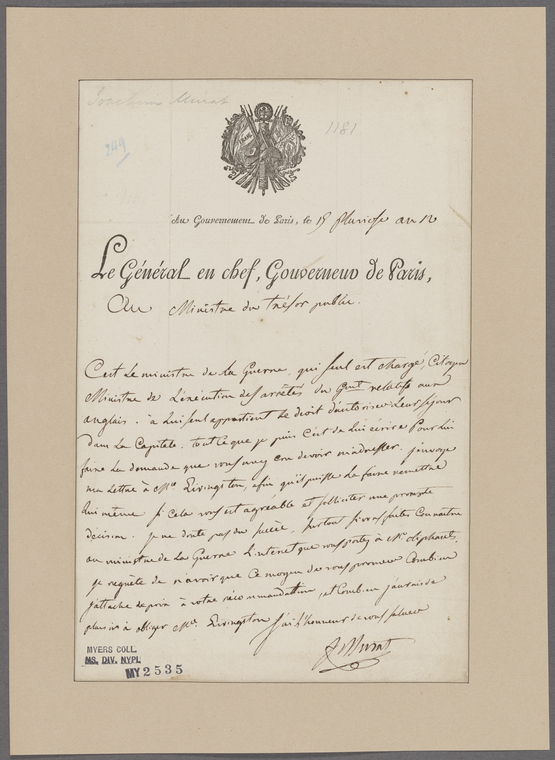 Joachim Murat
1181
249
Au Gouvernement de Paris, le 15 pluviose an 12
Le Général en chef, Gouverneur de Paris,
Au Ministre du trésor public.
C'est le ministre de la Guerre, qui seul est chargé, Citoyen
Ministre de L'exécution des arrêtés du Gnt relatifs aux
anglais. à lui seul appartient le droit d'autoriser Leur séjour
dans La Capitale. tout ce que je puis c'est de lui écrire pour lui
faire la demande que vous avez cru devoir m'adresser. j'envoye
ma lettre à Mr. Livingston, afin qu'il puisse la faire remettre
lui même si cela vous est agréable et solliciter une prompte
décision. je ne doute pas du succès, surtout si vous faites connaitre
au ministre de la Guerre L'interet que vous portez à Mr. oliphant.
je regrète de n'avoir que ce moyen de vous prouver Combien
j'attache de prix à votre recommandation, et Combien j'aurais de
plaisir à obliger Mr. Livingston j'ai l'honneur de vous saluer
J. Murat
MYERS COLL.
MS. DIV. NYPL
MY 2535